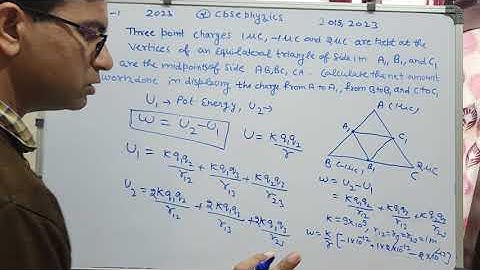 -1 2023 @cbsephysics 2019, 2023
Three point charges 1μC, -1μC and 2μC are kept at the
vertices of an Equilateral triangle of side 1m A1, B1, and C1
are the midpoints of side AB, BC, CA. Calculate the net amount
work done in displacing the charge from A to A1, from B to B1 and C to C1
U1 → Pot Energy, U2→
W = U2-U1
U = Kq1q2/r
U1 = Kq1q2/r12 + Kq1q2/r13 + Kq1q2/r23
U2 = 2Kq1q2/r12 + 2Kq1q2/r13 + 2Kq1q2/r23
A (1μC)
A1
C1
B(-1μC) B1 C 2μC
W = U2-U1
= Kq1q2/r12 + Kq1q2/r13 + Kq1q2/r23
K = 9x10⁹, r12=r13=r23=1m
W = K/r [-1x10⁻¹² + 1x2x10⁻¹² - 2x10⁻¹²]